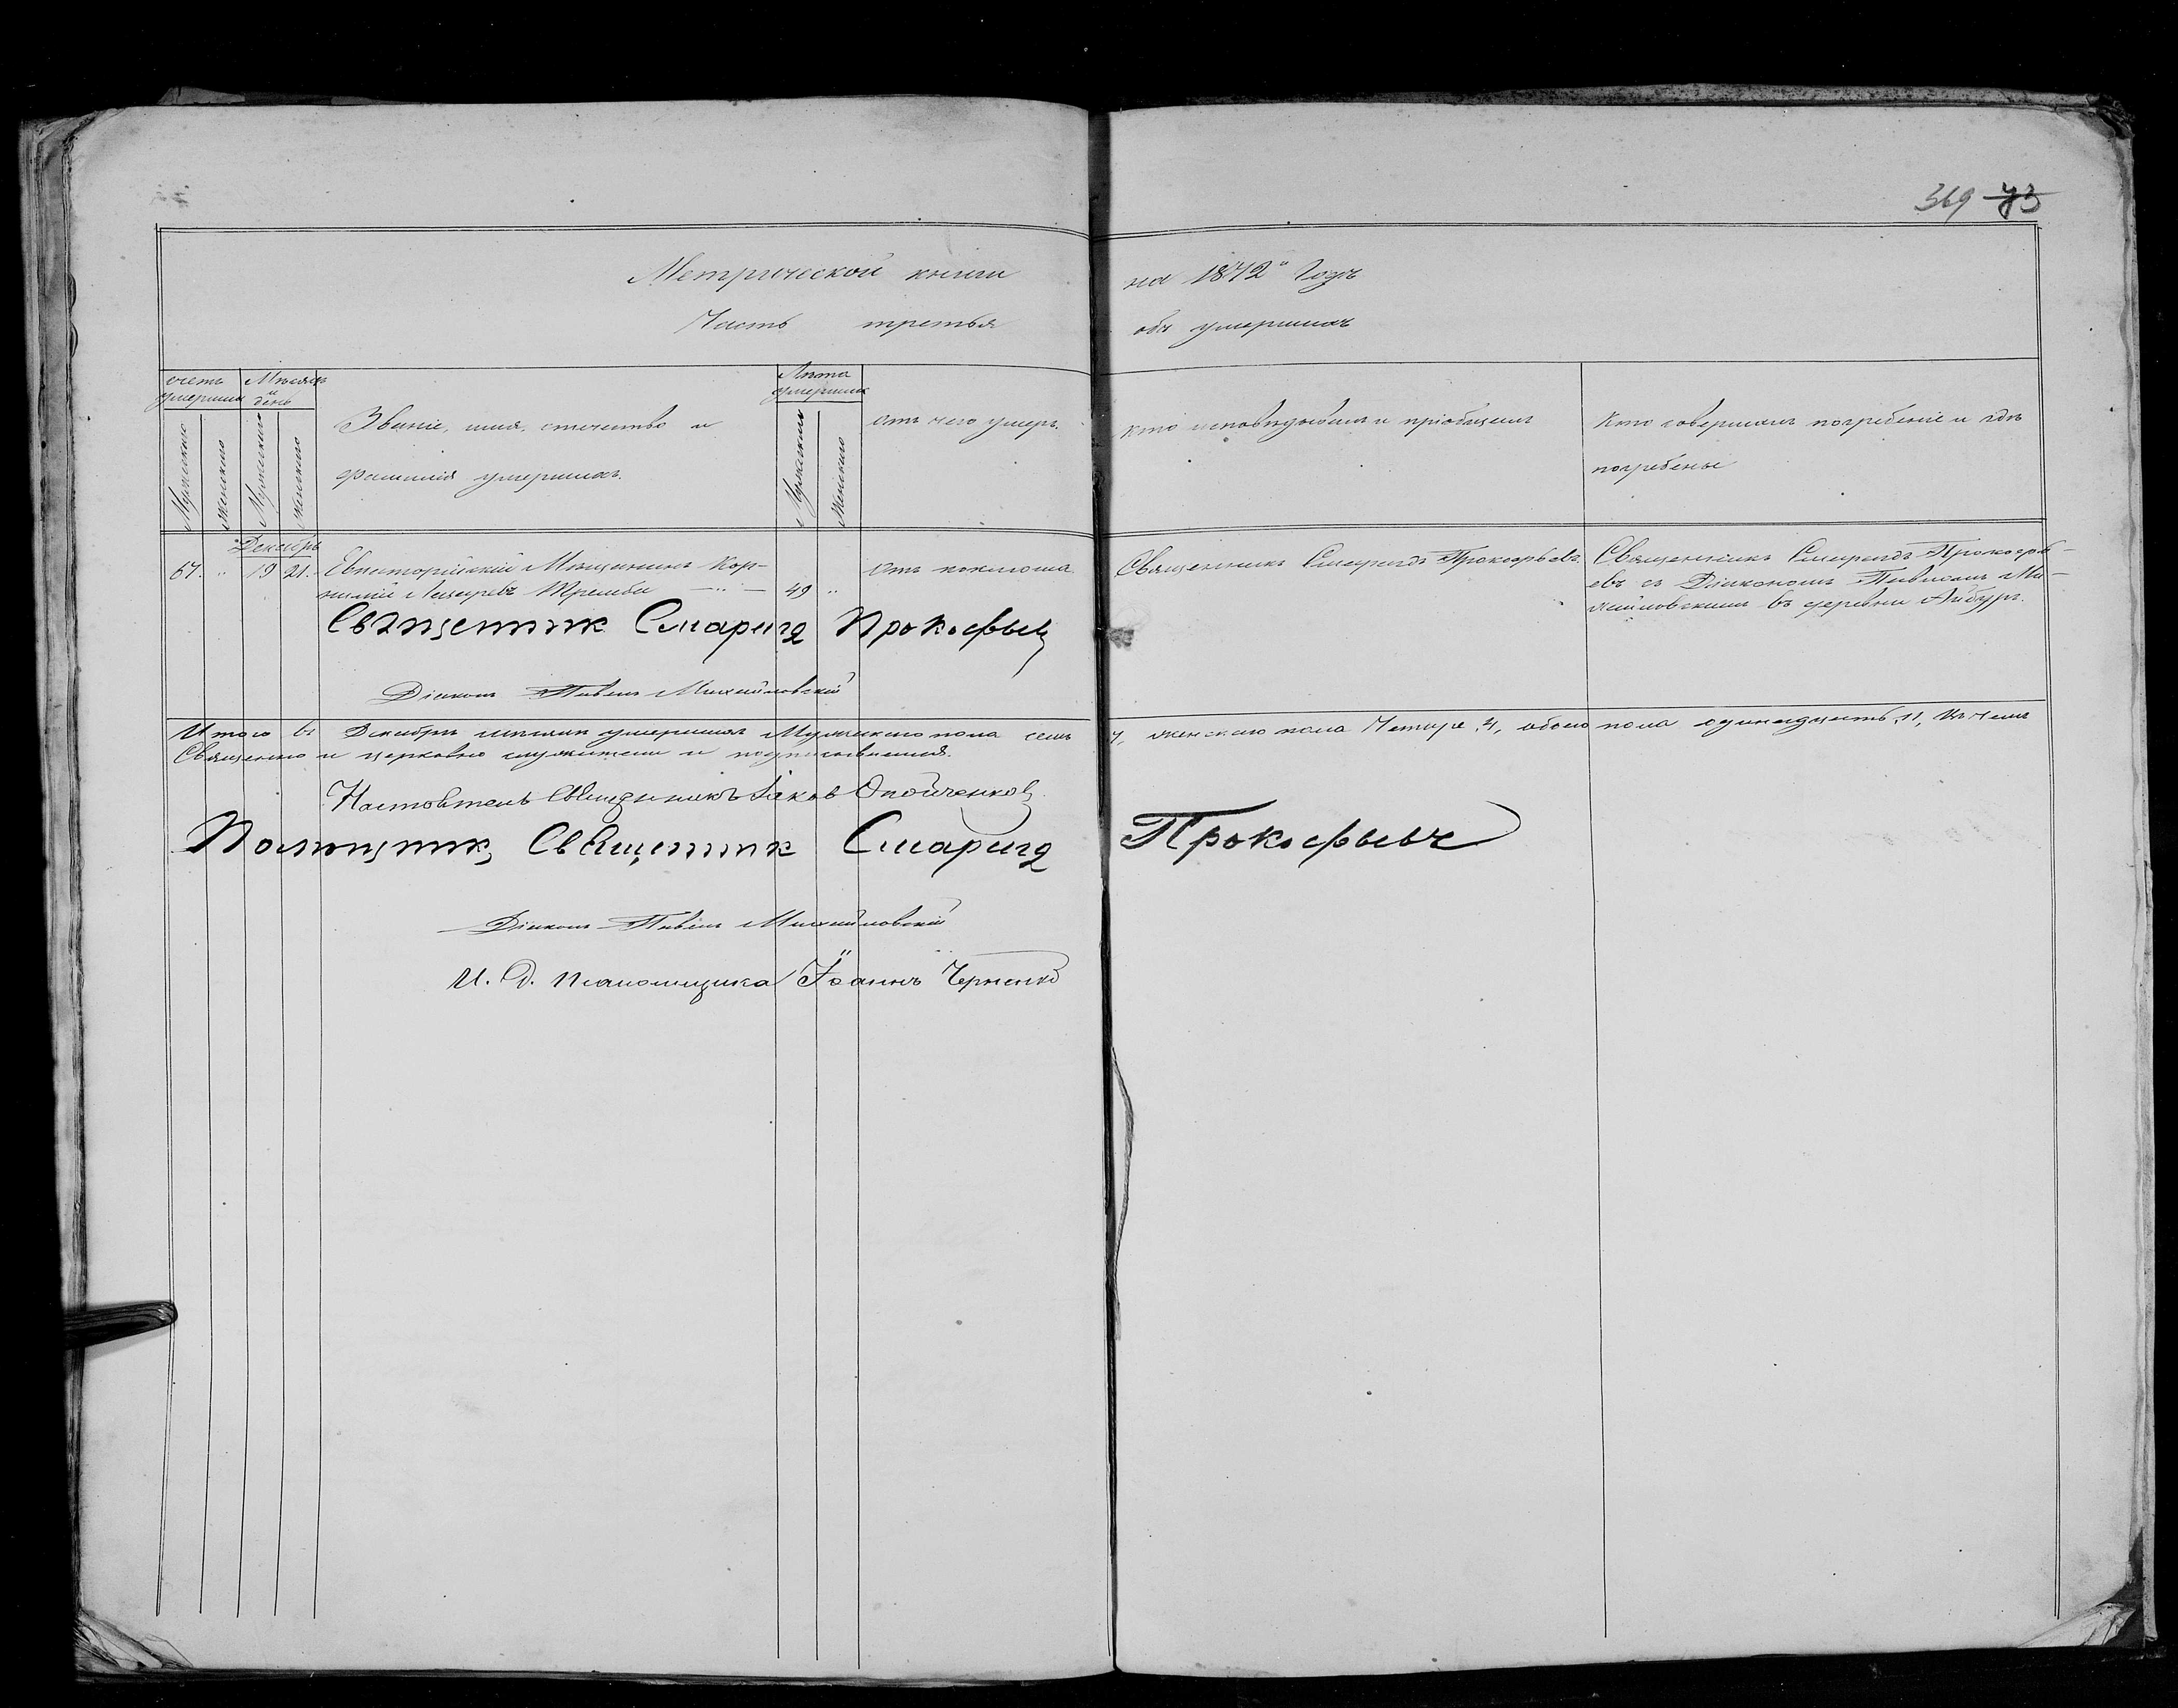 369 73
Метрической книги на 1872й Годъ
Часть третья объ умершихъ
счетъ умершихъ
Мужескаго
Женскаго
Мѣсяцъ и день
Мужескаго
Женскаго
Званіе, имя, отчество и
фамилія умершихъ.
Лѣта умершихъ
Мужескаго
Женскаго
отъ чего умеръ.
кто исповѣдывалъ и пріобщалъ
Кто совершалъ погребеніе и гдѣ
погребены
Декабрь
67. " 19 21. Евпаторійскій Мѣщанинъ Кор-
нилій Лазаревъ Тремба — " — 49 "
отъ коклюша.
Священникъ Смарагдъ Прокофьевъ.
Священникъ Смарагдъ Прокофь-
евъ съ Діакономъ Павломъ Ми-
хайловскимъ въ деревни Айбуръ.
Священник Смарагд Прокофьев
Діаконъ Павелъ Михайловскій
Итого въ Декабрѣ мѣсяцѣ умершихъ Мужескаго пола семь 7, женскаго пола Четыре, 4, обоего пола одинадцать, 11, въ чемъ
Священно и церковно служители и подписываемся.
Настоятель Священникъ Іаков Опойченков
Помощник Священник Смарагд Прокофьевъ
Діаконъ Павелъ Михайловскій
И. Д. Псаломщика Іоаннъ Черненко